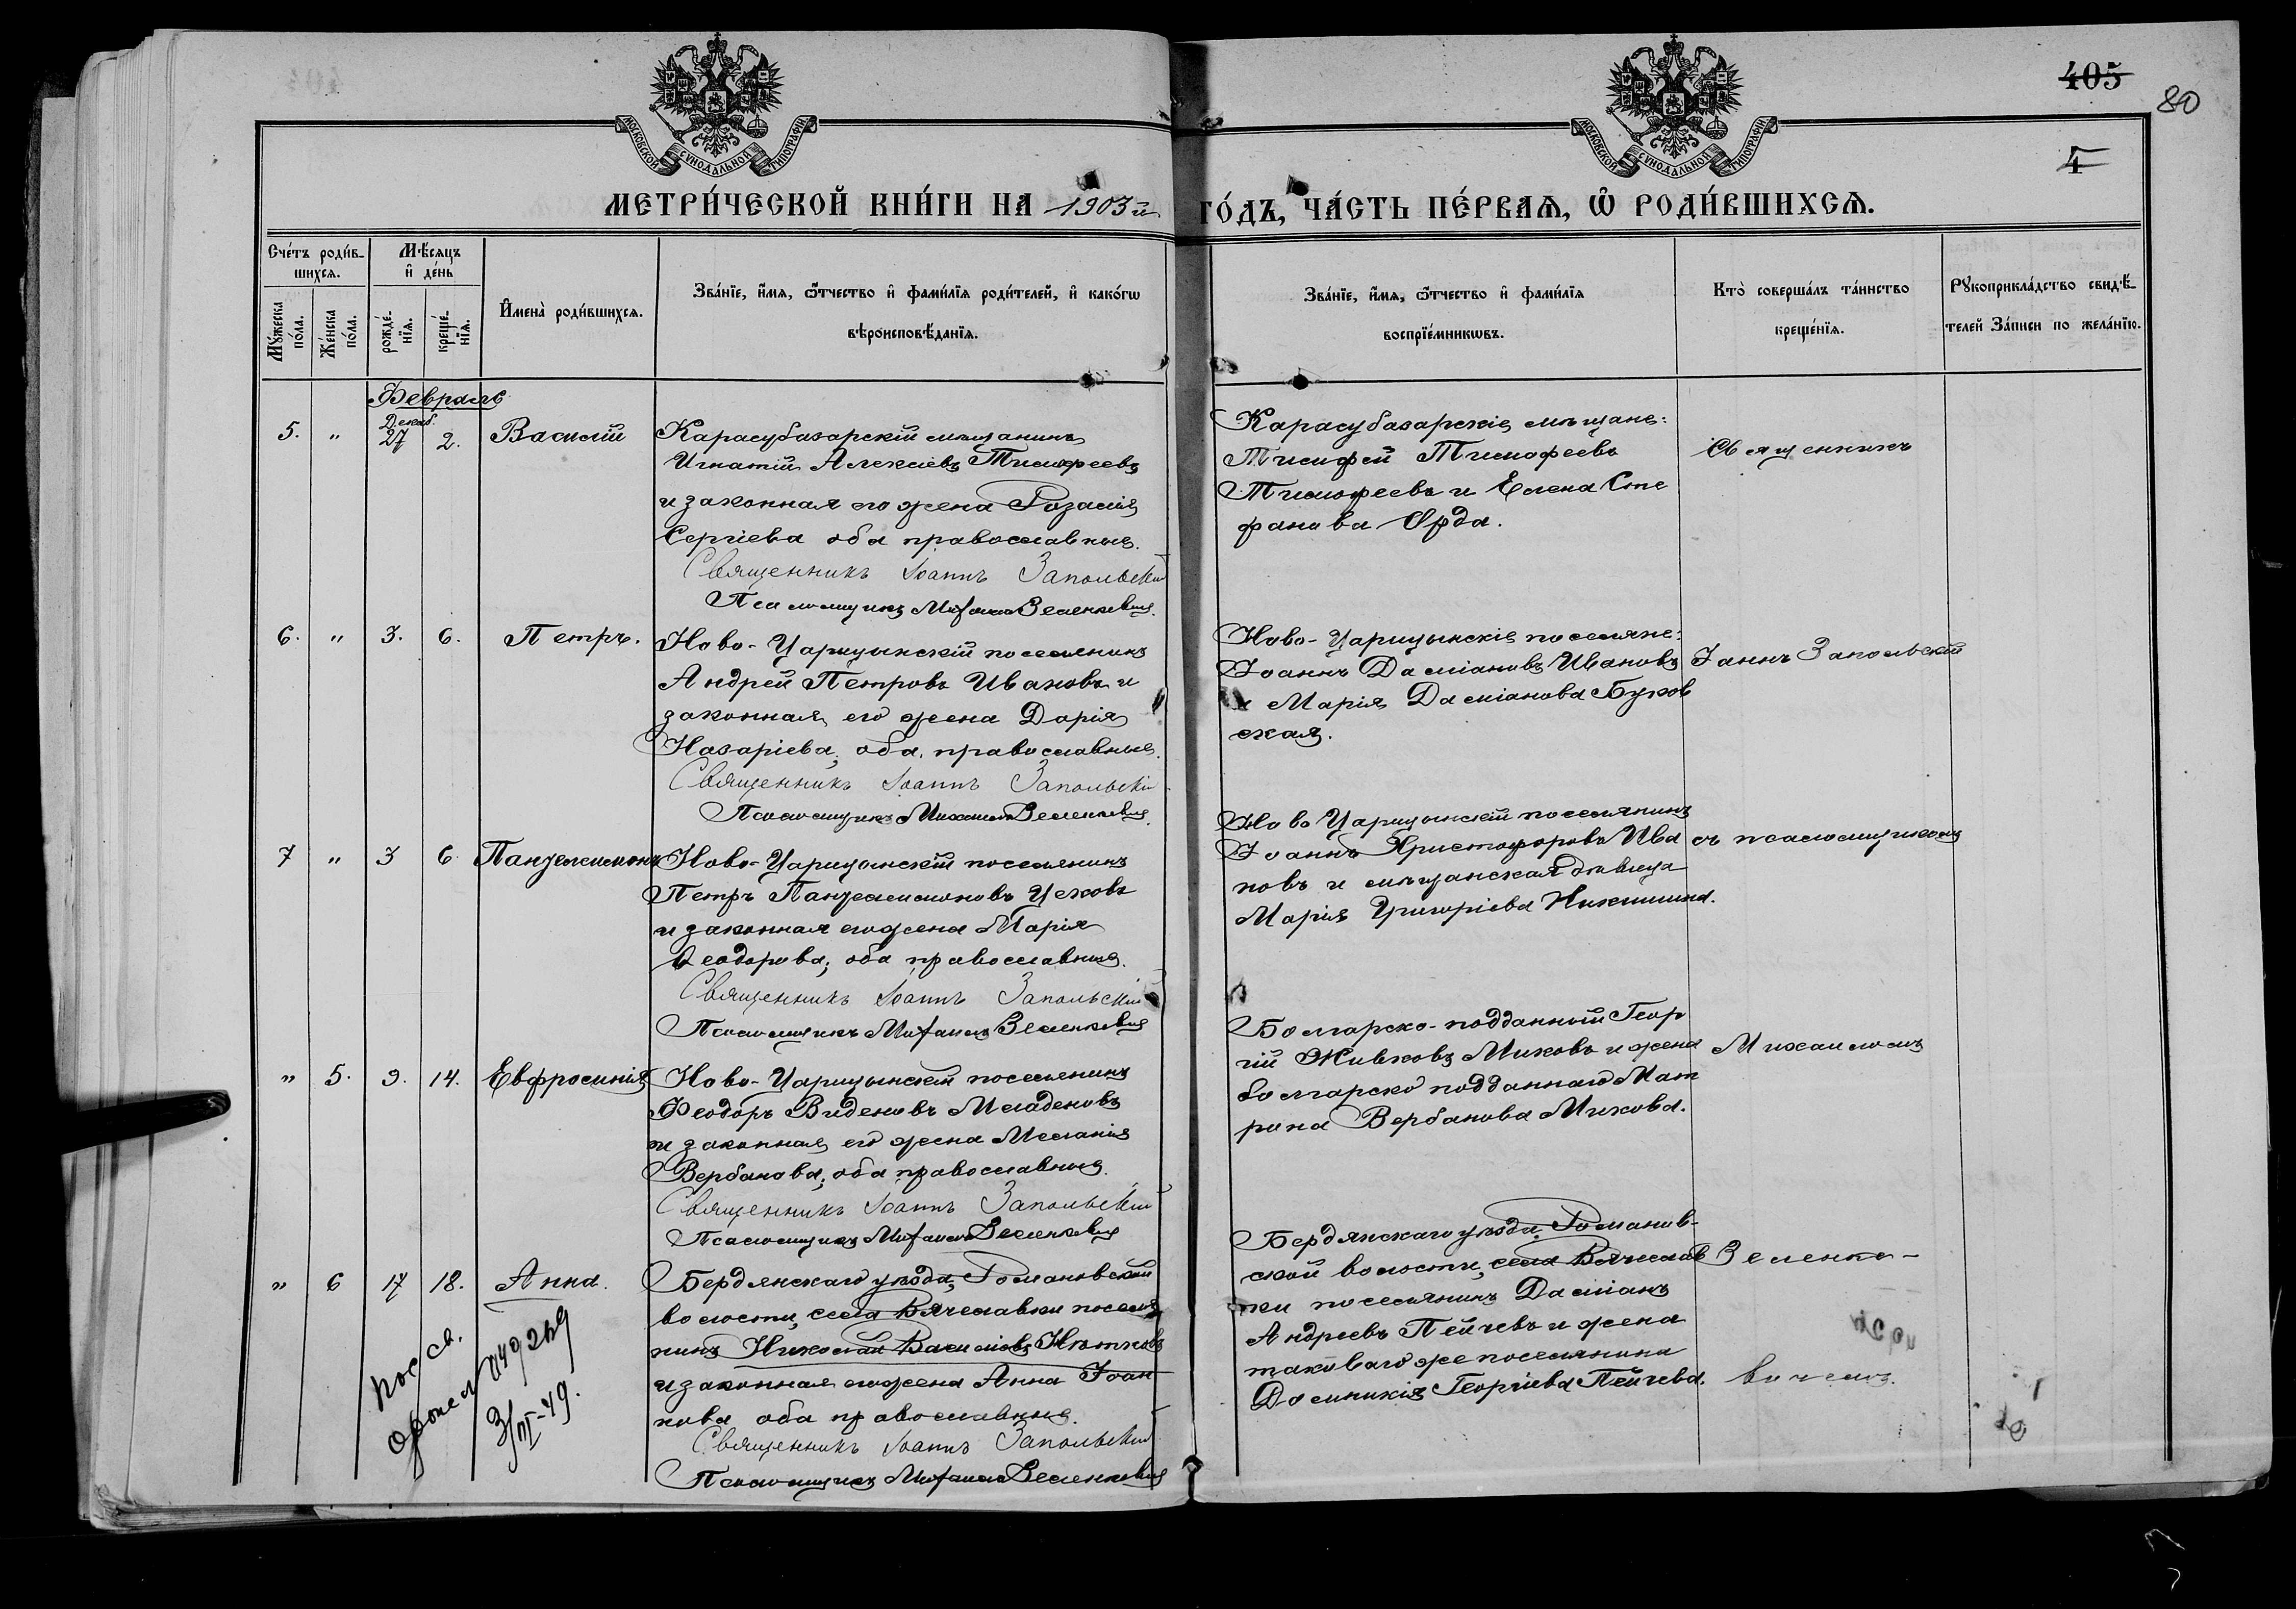 МОСКОВСКОЙ СѴНОДАЛЬНОЙ ТИПОГРАФІИ
МОСКОВСКОЙ СѴНОДАЛЬНОЙ ТИПОГРАФІИ
405
80
4
МЕТРИ́ЧЕСКОЙ КНИ́ГИ НА 1903й ГО́ДЪ, ЧА́СТЬ ПЕ́РВАѦ, Ѡ РОДИ́ВШИХСѦ.
Сче́тъ роди́в-
шихсѧ.
Мꙋ́жеска по́ла.
Же́нска по́ла.
Мѣ́сѧцъ
и҆ де́нь
рожде́-
нїѧ.
креще́-
нїѧ.
И҆мена̀ роди́вшихсѧ.
Зва́нїе, и҆́мѧ, ѻ҆́тчество и҆ фами́лїѧ роди́телей, и҆ како́гѡ
вѣроисповѣ́данїѧ.
Зва́нїе, и҆́мѧ, ѻ҆́тчество и҆ фами́лїѧ
воспрїе́мникѡвъ.
Кто̀ соверша́лъ та́инство
креще́нїѧ.
Рꙋкоприкла́дство свидѣ́-
телей За́писи по жела́нїю.
Февраль
5. " Декаб. 27 2. Василій
Карасубазарскій мѣщанинъ
Игнатій Алексіевъ Тимофеевъ
и законная его жена Розалія
Сергіева оба православные.
Священникъ Іоаннъ Запольскій
Псаломщикъ Михаилъ Зеленкевичъ.
Карасубазарскіе мѣщане:
Тимофей Тимофеевъ
Тимофеевъ и Елена Сте
фанова Орда.
Священникъ
6. " 3. 6. Петръ.
Ново-Царицынскій поселянинъ
Андрей Петровъ Ивановъ и
законная его жена Дарія
Назаріева, оба православные.
Священникъ Іоаннъ Запольскій
Псаломщикъ Михаилъ Зеленкевичъ.
Ново-Царицынскіе поселяне:
Іоаннъ Даміановъ Ивановъ
и Марія Даміанова Буков
ская.
Іоаннъ Запольскій
7 " 3 6 Пантелеимонъ
Ново-Царицынскій поселянинъ
Петръ Пантелеимоновъ Цековъ
и законная его жена Марія
Ѳеодорова; оба православные.
Священникъ Іоаннъ Запольскій
Псаломщикъ Михаилъ Зеленкевичъ
Ново Царицынскій поселянинъ
Іоаннъ Христофоровъ Ива
новъ и мѣщанская дѣвица
Марія Григоріева Никишина.
съ псаломщикомъ
" 5. 9. 14. Евфросинія
Ново-Царицынскій поселянинъ
Феодоръ Виденовъ Младеновъ
и законная его жена Меланія
Вербанова; оба православные.
Священникъ Іоаннъ Запольскій
Псаломщикъ Михаилъ Зеленкевичъ
Болгарско-подданный Геор
гій Живковъ Миховъ и жена
болгарско подданнаго Мат
рона Вербанова Михова.
Михаиломъ
" 6 17 18. Анна.
Бердянскаго уѣзда, Романовской
волости, села Вячеславки поселя
нинъ Николай Василіевъ Нѣтковъ
и законная его жена Анна Іоан
нова оба православные.
Священникъ Іоаннъ Запольскій
Псаломщикъ Михаилъ Зеленкевичъ
Бердянскаго уѣзда, Романов-
ской волости, села Вячеслав
ки поселянинъ Даміанъ
Андреевъ Пейчевъ и жена
таковаго же поселянина
Домникія Георгіева Пейчева.
Зеленке-
вичемъ.
3/III-49.